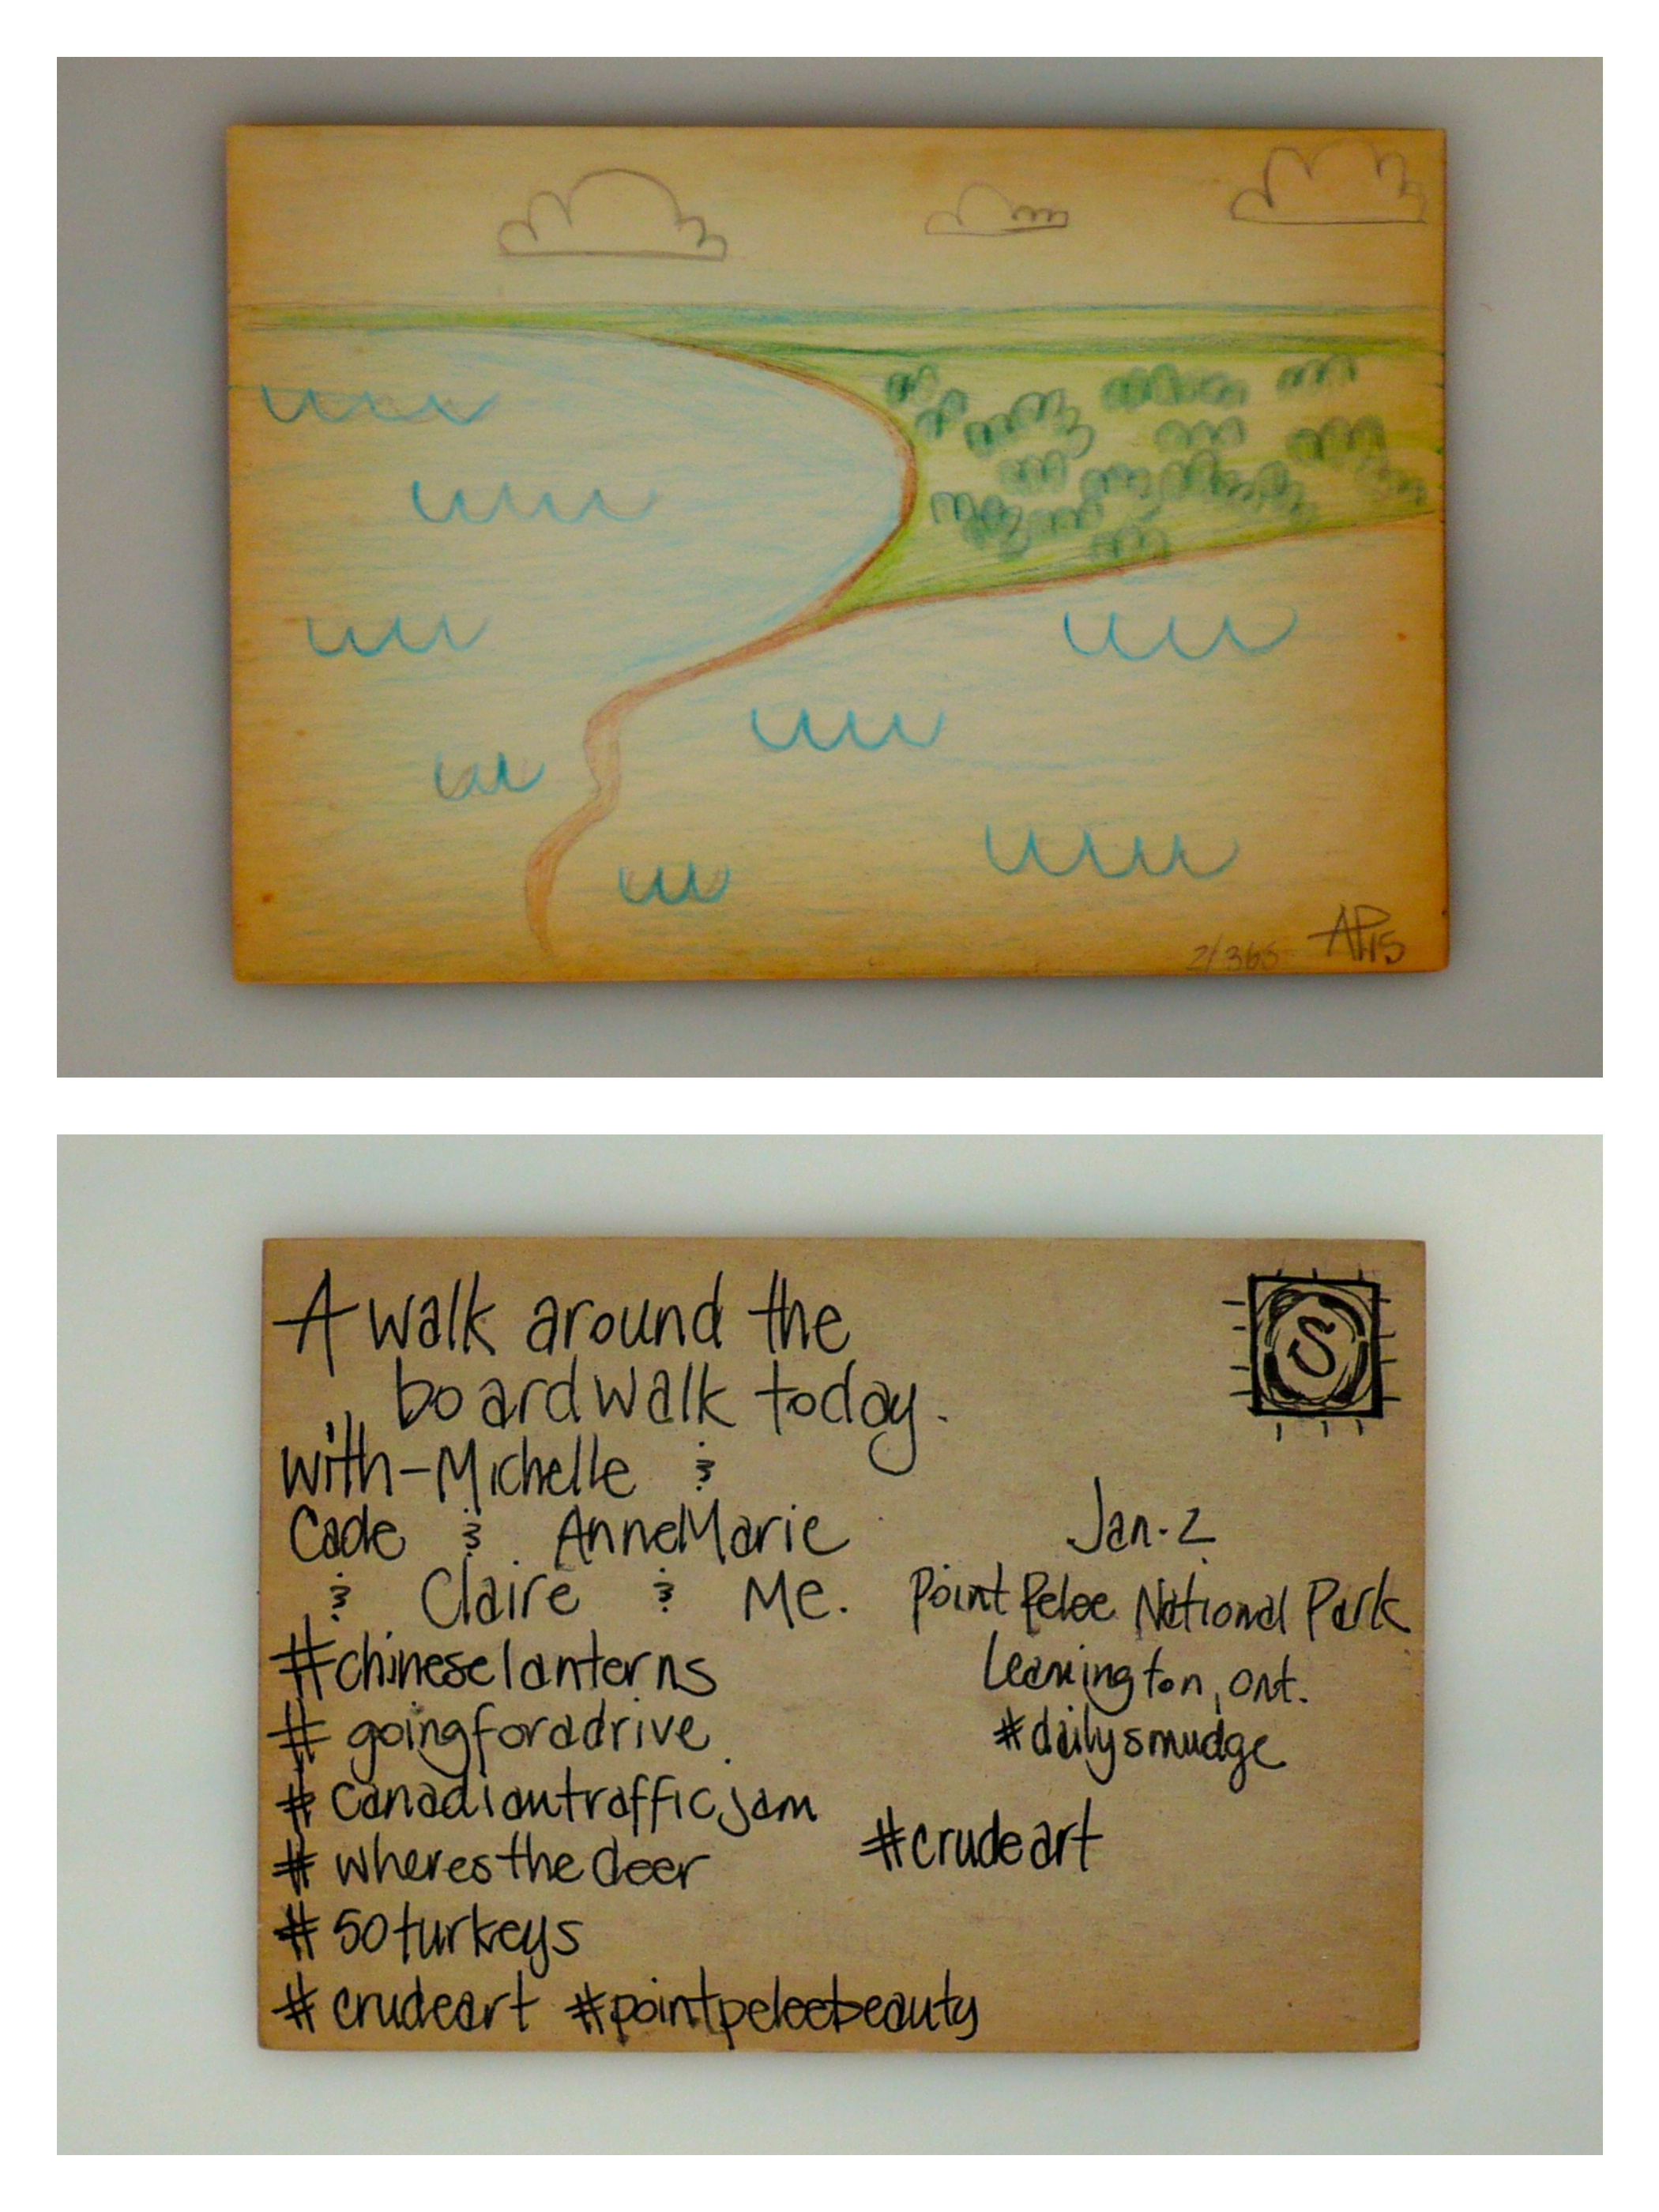 2/365 AP15
A walk around the
boardwalk today.
S
with-Michelle &
Cade & AnneMarie
& Claire & Me.
Jan. 2
Point Pelee National Park
Leamington, Ont.
#dailysmudge
#chineselanterns
#goingforadrive
#canadiantrafficjam
#crudeart
#wheresthedeer
#50turkeys
#crudeart #pointpeleebeauty